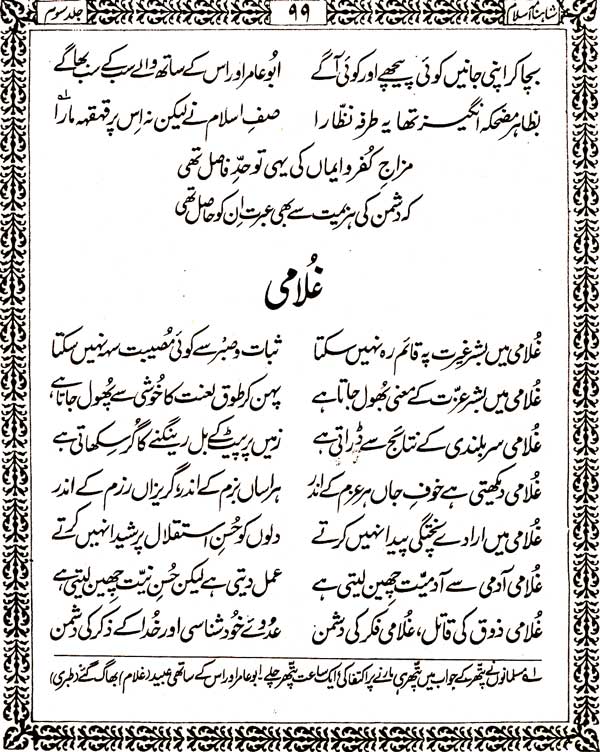 شاہنامۂ اسلام ۹۹ جلد سوم
بچا کر اپنی جانیں کوئی پیچھے اور کوئی آگے ابو عامر اور اس کے ساتھ والے سب کے سب بھاگے
بظاہر مضحکہ انگیز تھا یہ طرفہ نظّارا صفِ اسلام نے لیکن نہ اِس پر قہقہہ مارا ؎۱
مزاجِ کُفر و ایماں کی یہی تو حدِّ فاصل تھی
کہ دشمن کی ہزیمت سے بھی عبرت اِن کو حاصل تھی
غُلامی
غُلامی میں بشر غیرت پہ قائم رہ نہیں سکتا ثبات و صبر سے کوئی مُصیبت سہہ نہیں سکتا
غُلامی میں بشر عزّت کے معنی بھُول جاتا ہے پہن کر طوق لعنت کا خُوشی سے پھُول جاتا ہے
غُلامی سربلندی کے نتائج سے ڈراتی ہے زمیں پر پیٹ کے بل رینگنے کا گُر سکھاتی ہے
غُلامی دیکھتی ہے خوفِ جاں ہر عزم کے اندر ہراساں بزم کے اندر، گریزاں رزم کے اندر
غُلامی میں ارادے پختگی پیدا نہیں کرتے دلوں کو حُسنِ استقلال پر شیدا نہیں کرتے
غُلامی آدمی سے آدمیّت چھین لیتی ہے عمل دیتی ہے لیکن حُسنِ نیّت چھین لیتی ہے
غُلامی ذوق کی قاتل، غُلامی فکر کی دشمن عدُوئے خُود شناسی اور خُدا کے ذکر کی دشمن
؎۱ مسلمانوں نے پتھر کے جواب میں پتھر ہی مارنے پر اکتفا کی ایک ساعت پتھر چلے۔ ابو عامر اور اس کے ساتھی عبید (غلام) بھاگ گئے (طبری)